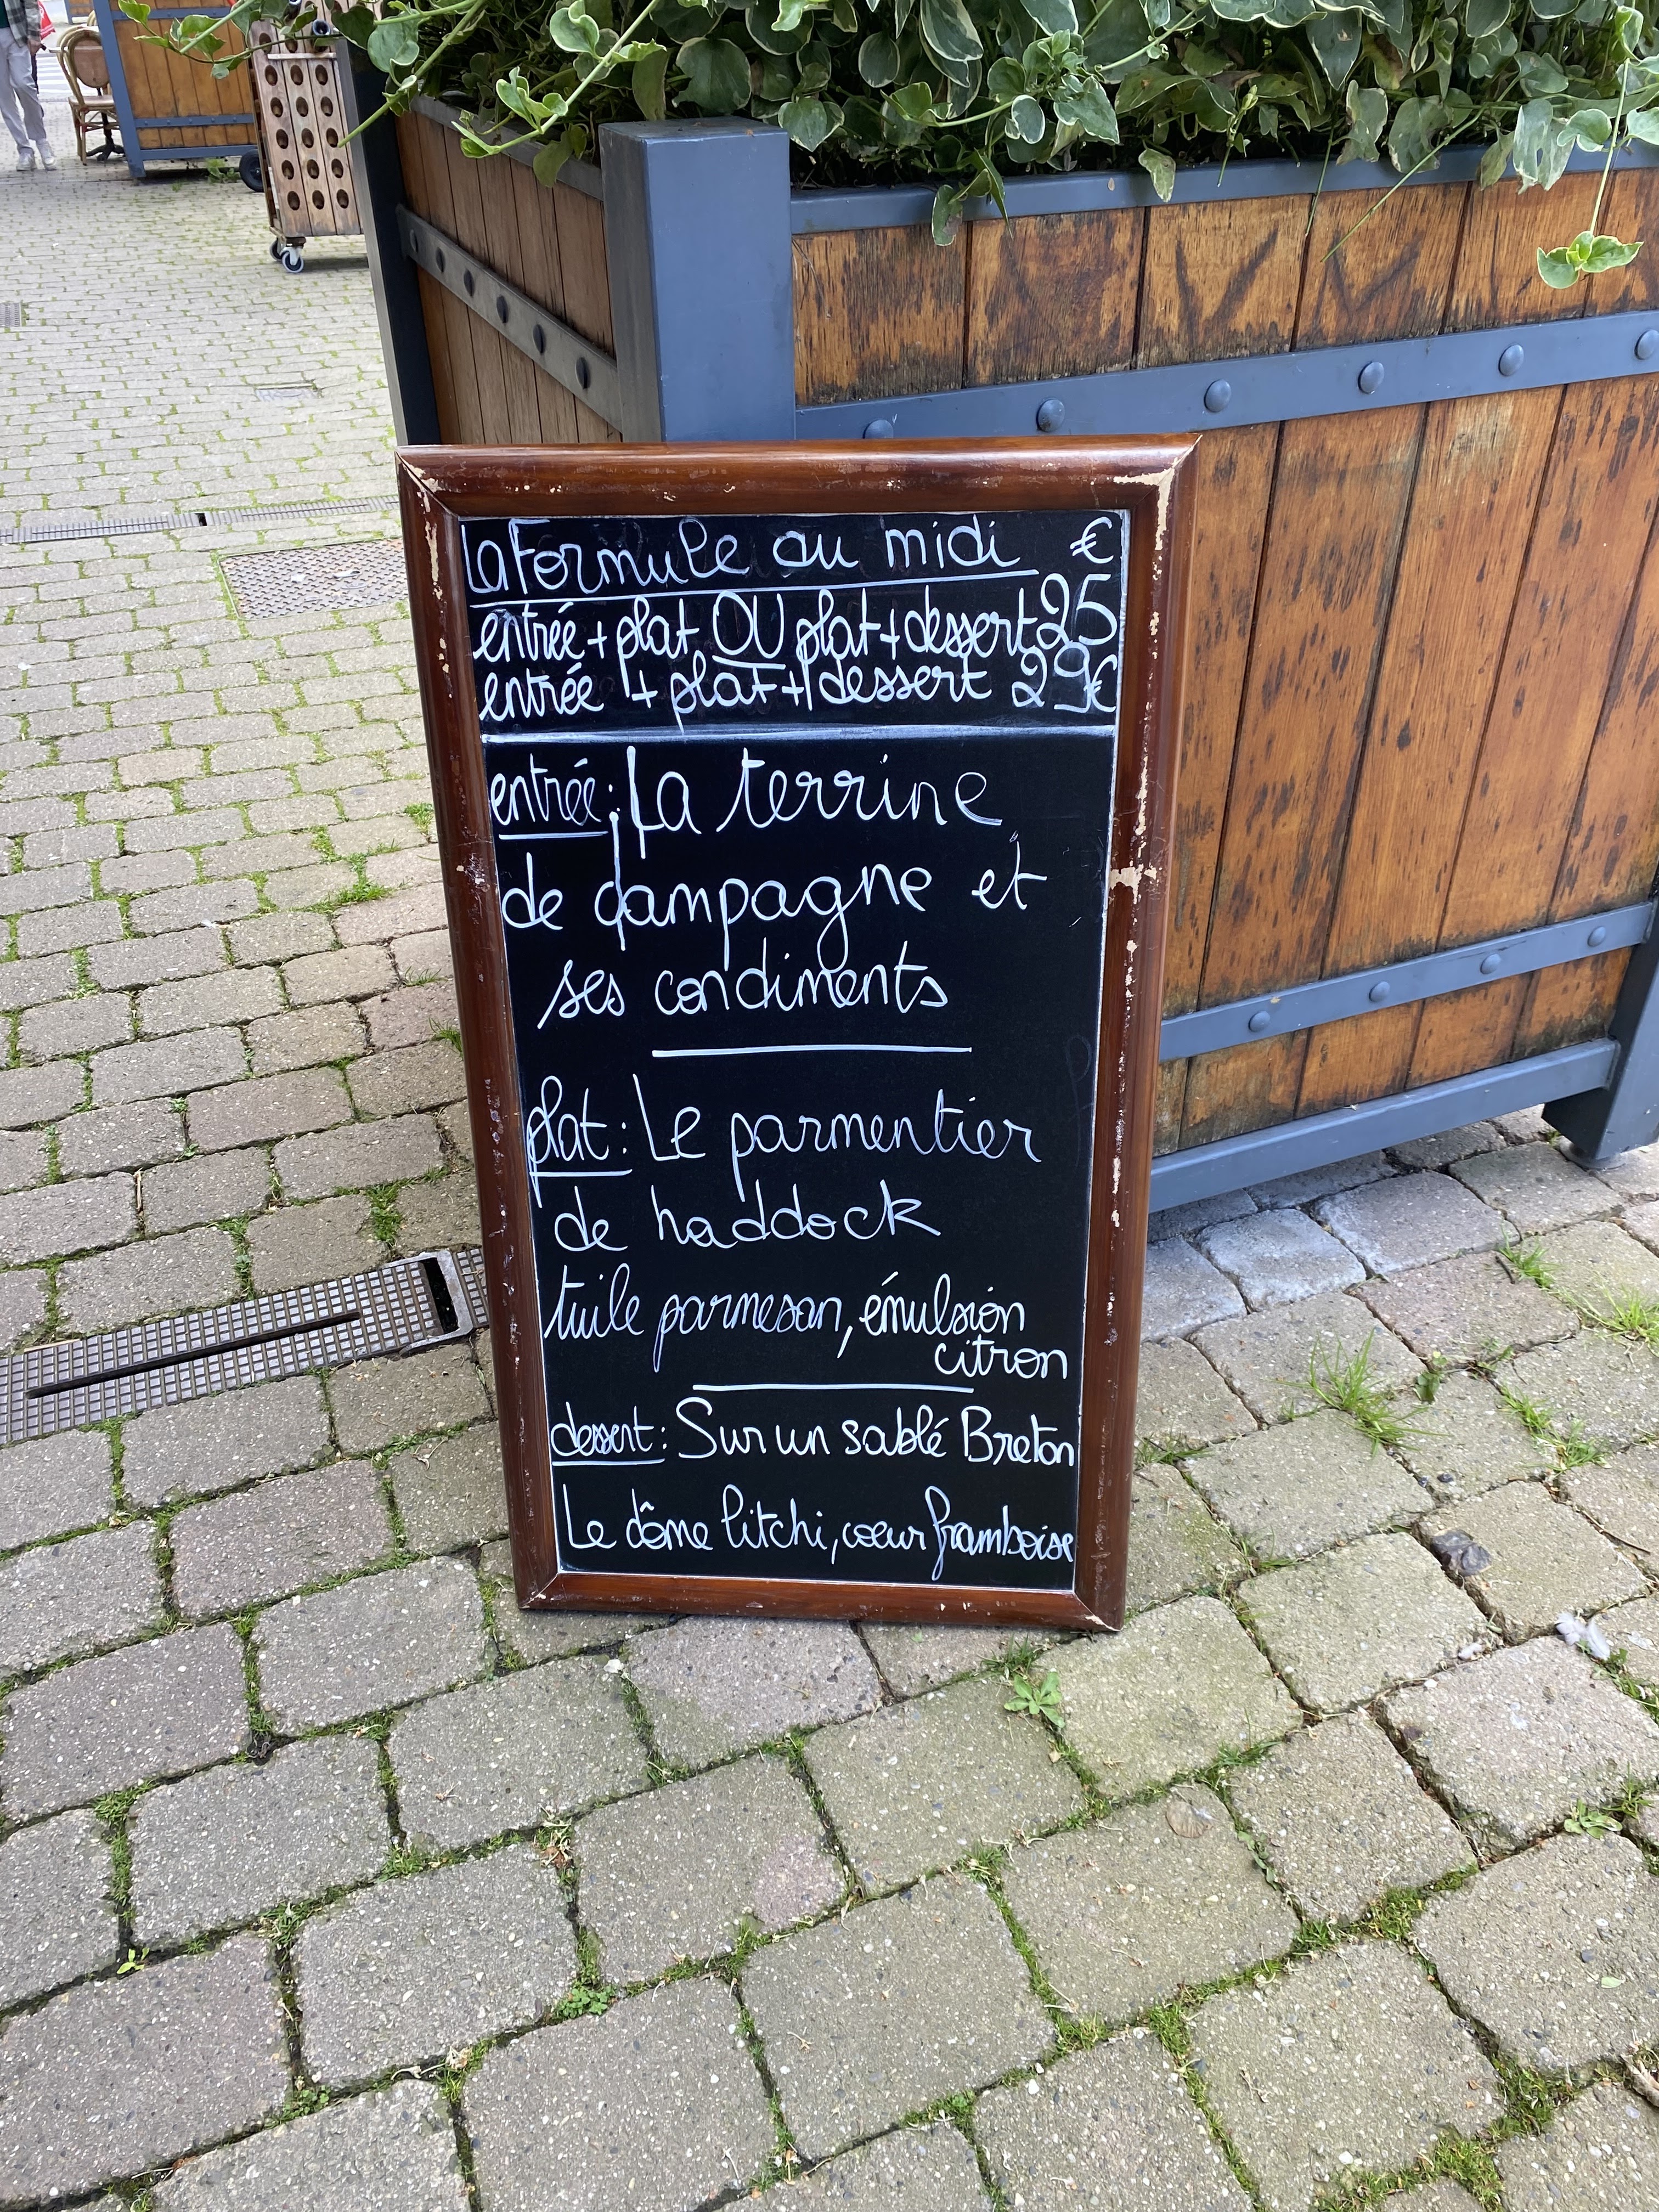 La Formule au midi €
entrée + plat OU plat + dessert 25
entrée + plat + dessert 29€
entrée : La terrine
de campagne et
ses condiments
plat : Le parmentier
de haddock
tuile parmesan, émulsion
citron
dessert : Sur un sablé Breton
Le dôme litchi, coeur framboise